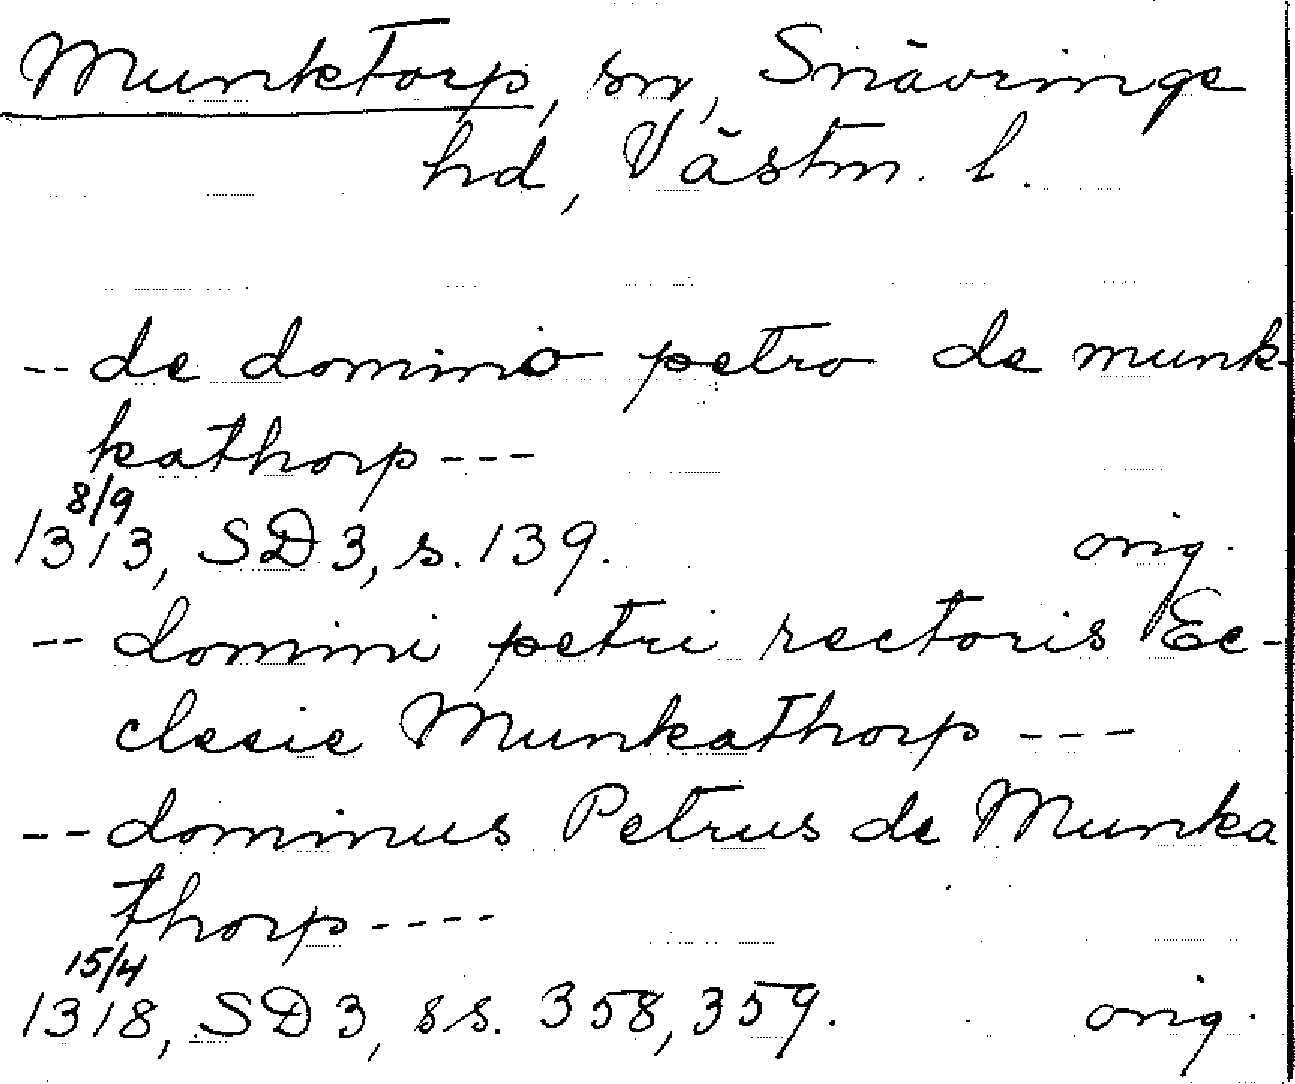 Munktorp, sn, Snävringe
hd, Västm. l.
-- de domino petro de munk-
kathorp ---
8/9
1313, SD 3, s. 139. orig.
-- domini petri rectoris Ec-
clesie Munkathorp ---
-- dominus Petrus de Munka
thorp ----
15/4
1318, SD 3, ss. 358, 359. orig.